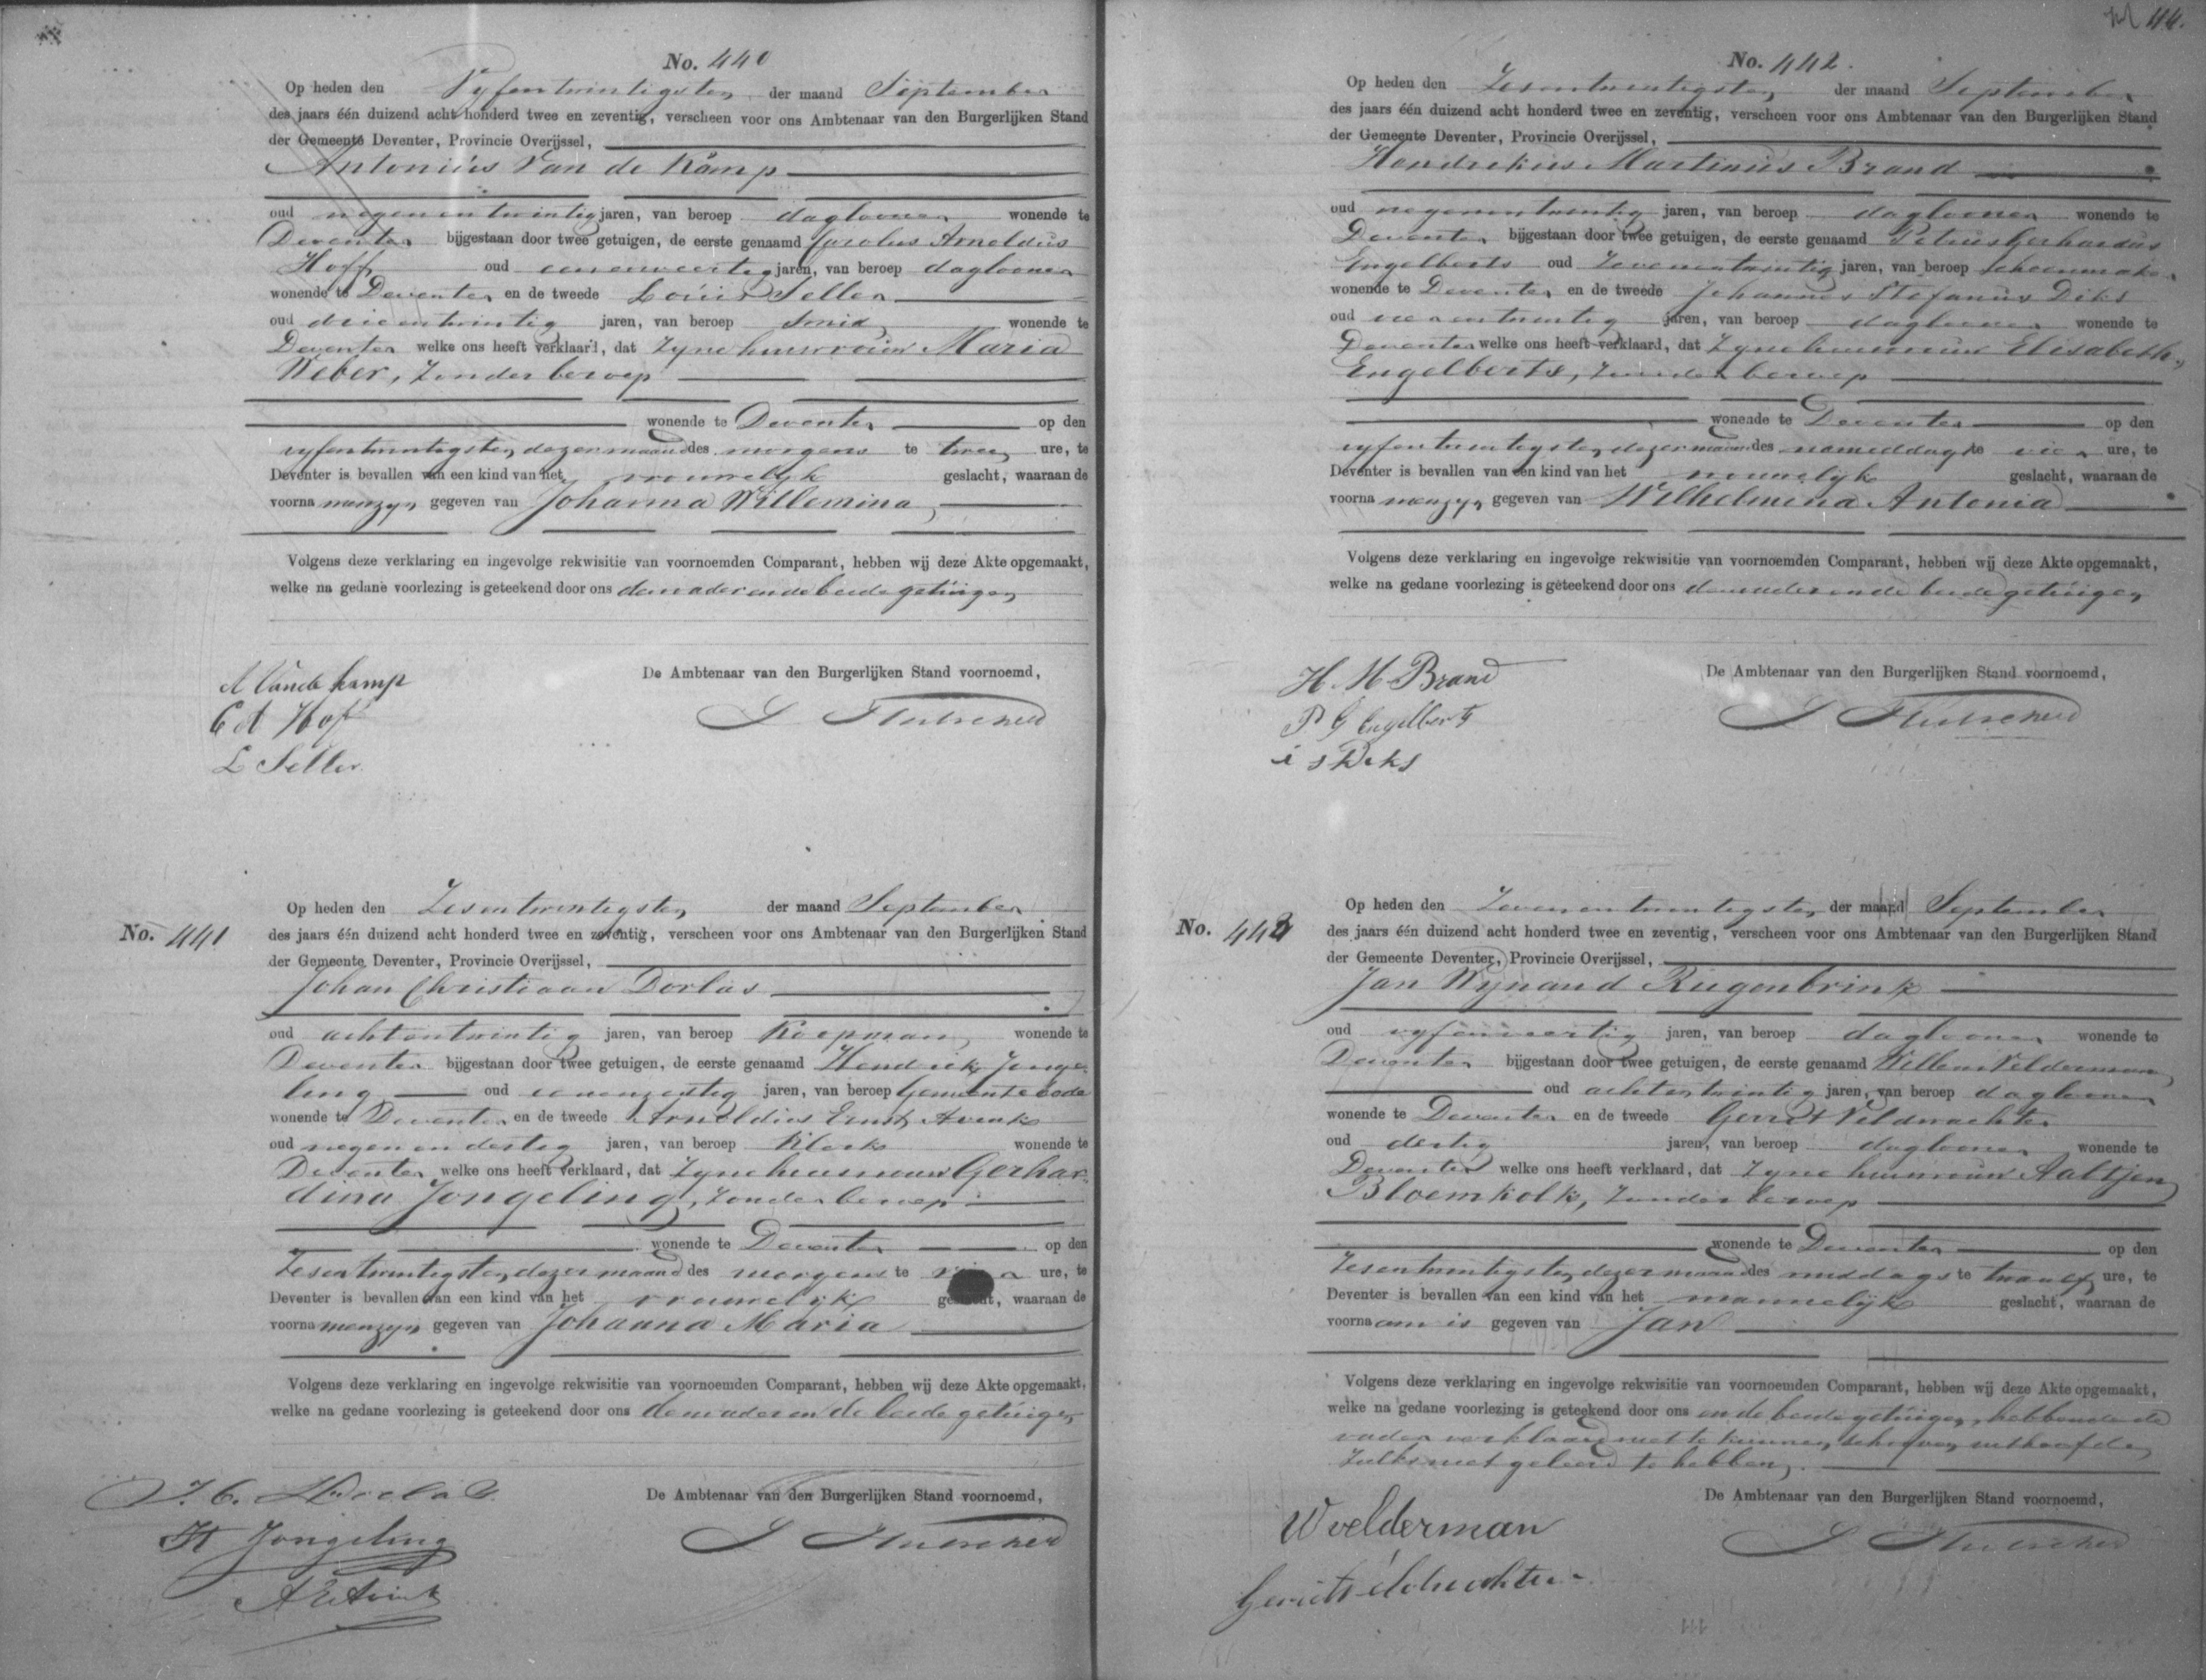 No. 440
Op heden den Vyfentwintigsten der maand September
des jaars één duizend acht honderd twee en zeventig, verscheen voor ons Ambtenaar van den Burgerlijken Stand
der Gemeente Deventer, Provincie Overijssel,
Antonius Van de Kamp
oud negenentwintig jaren, van beroep daglooner wonende te
Deventer bijgestaan door twee getuigen, de eerste genaamd Carolus Arnoldus
Hoff oud eenenveertig jaren, van beroep daglooner
wonende te Deventer en de tweede Louis Seller
oud drieentwintig jaren, van beroep smid wonende te
Deventer welke ons heeft verklaard, dat Zyne huisvrouw Maria
Weber, Zonder beroep
wonende te Deventer op den
vyfentwintigsten dezer maand des morgens te twee ure, te
Deventer is bevallen van een kind van het vrouwelyk geslacht, waaraan de
voornamen zyn gegeven van Johanna Willemina
Volgens deze verklaring en ingevolge rekwisitie van voornoemden Comparant, hebben wij deze Akte opgemaakt,
welke na gedane voorlezing is geteekend door ons den vader en de beide getuigen
De Ambtenaar van den Burgerlijken Stand voornoemd,
A Vande Kamp
C A Hof
L Seller
No. 441
Op heden den Zesentwintigsten der maand September
des jaars één duizend acht honderd twee en zeventig, verscheen voor ons Ambtenaar van den Burgerlijken Stand
der Gemeente Deventer, Provincie Overijssel,
Johan Christiaan Dorlas
oud achtentwintig jaren, van beroep Koopman wonende te
Deventer bijgestaan door twee getuigen, de eerste genaamd Hendrik Jonge-
ling oud eenenzestig jaren, van beroep Gemeentebode
wonende te Deventer en de tweede Arnoldus Ernst Avenk
oud negenendertig jaren, van beroep Klerk wonende te
Deventer welke ons heeft verklaard, dat Zyne huisvrouw Gerhar-
dina Jongeling, Zonder beroep
wonende te Deventer op den
Zesentwintigsten dezer maand des morgens te ure, te
Deventer is bevallen van een kind van het vrouwelyk geslacht, waaraan de
voornamen zyn gegeven van Johanna Maria
Volgens deze verklaring en ingevolge rekwisitie van voornoemden Comparant, hebben wij deze Akte opgemaakt,
welke na gedane voorlezing is geteekend door ons den vader en de beide getuigen
De Ambtenaar van den Burgerlijken Stand voornoemd,
J. C. Dorlas
H Jongeling
No. 442.
Op heden den Zesentwintigsten der maand September
des jaars één duizend acht honderd twee en zeventig, verscheen voor ons Ambtenaar van den Burgerlijken Stand
der Gemeente Deventer, Provincie Overijssel,
Hendrikus Martinus Brand
oud negenentwintig jaren, van beroep daglooner wonende te
Deventer bijgestaan door twee getuigen, de eerste genaamd Petrus Gerhardus
Engelberts oud Zevenentwintig jaren, van beroep Schoenmaker
wonende te Deventer en de tweede Johannes Stefanus Diks
oud vierentwintig jaren, van beroep daglooner wonende te
Deventer welke ons heeft verklaard, dat Zyne huisvrouw Elisabeth
Engelberts, Zonder beroep
wonende te Deventer op den
vyfentwintigsten dezer maand des namiddags te vier ure, te
Deventer is bevallen van een kind van het vrouwelyk geslacht, waaraan de
voornamen zyn gegeven van Wilhelmina Antonia
Volgens deze verklaring en ingevolge rekwisitie van voornoemden Comparant, hebben wij deze Akte opgemaakt,
welke na gedane voorlezing is geteekend door ons den vader en de beide getuigen
De Ambtenaar van den Burgerlijken Stand voornoemd,
H. M. Brand
P G Engelberts
i s Diks
No. 443
Op heden den Zevenentwintigsten der maand September
des jaars één duizend acht honderd twee en zeventig, verscheen voor ons Ambtenaar van den Burgerlijken Stand
der Gemeente Deventer, Provincie Overijssel,
Jan Wynand Rugenbrink
oud vyfenveertig jaren, van beroep daglooner wonende te
Deventer bijgestaan door twee getuigen, de eerste genaamd Willem Velderman
oud achtentwintig jaren, van beroep daglooner
wonende te Deventer en de tweede Gerrit Veldwachter
oud dertig jaren, van beroep daglooner wonende te
Deventer welke ons heeft verklaard, dat Zyne huisvrouw Aaltjen
Bloemkolk, Zonder beroep
wonende te Deventer op den
Zesentwintigsten dezer maand des middags te twaalf ure, te
Deventer is bevallen van een kind van het mannelyk geslacht, waaraan de
voornaam is gegeven van Jan
Volgens deze verklaring en ingevolge rekwisitie van voornoemden Comparant, hebben wij deze Akte opgemaakt,
welke na gedane voorlezing is geteekend door ons en de beide getuigen, hebbende de
vader verklaard niet te kunnen schryven uit hoofde
Zulks niet geleerd te hebben.
De Ambtenaar van den Burgerlijken Stand voornoemd,
W velderman